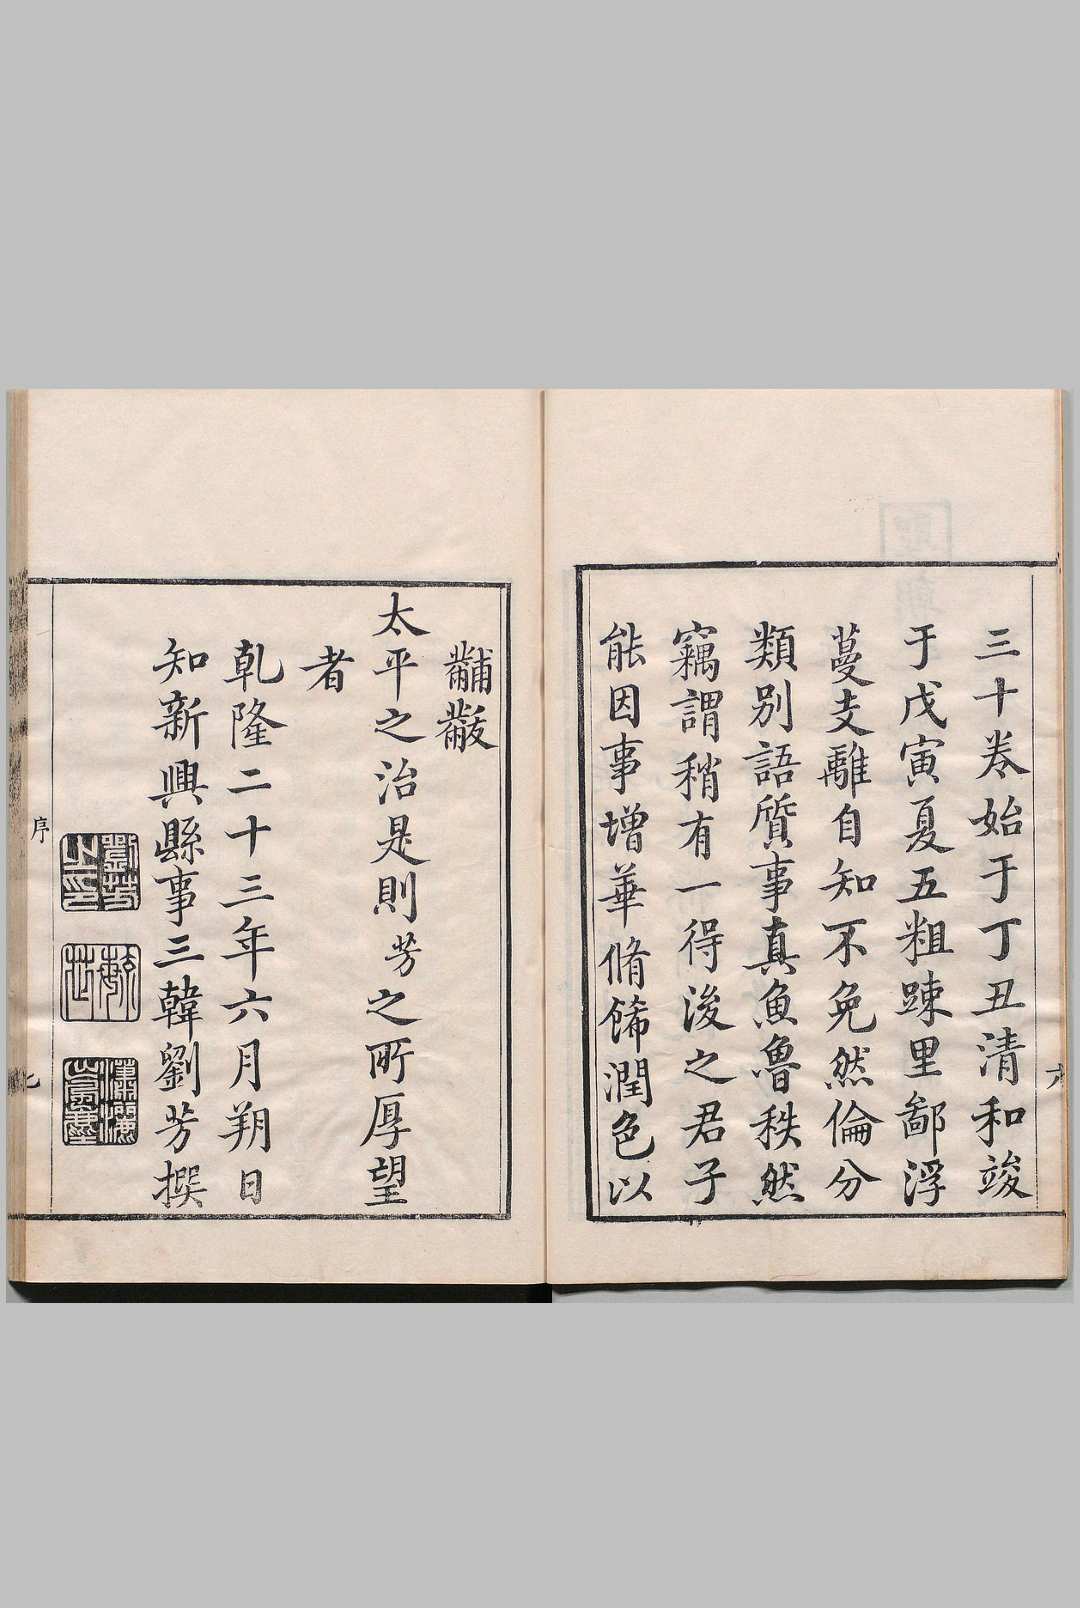 六
三十卷始于丁丑清和竣
于戊寅夏五粗踈里鄙浮
蔓支離自知不免然倫分
類別語質事真魚魯秩然
竊謂稍有一得後之君子
能因事增華脩餙潤色以
黼黻
太平之治是則芳之所厚望
者
乾隆二十三年六月朔日
知新興縣事三韓劉芳撰
劉芳之印
序
七